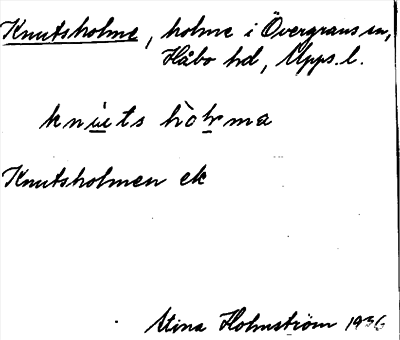 Knutsholme, holme i Övergrans sn,
Håbo hd, Upps. l.
knuts hòɫma
Knutsholmen ek
Stina Holmström 1936